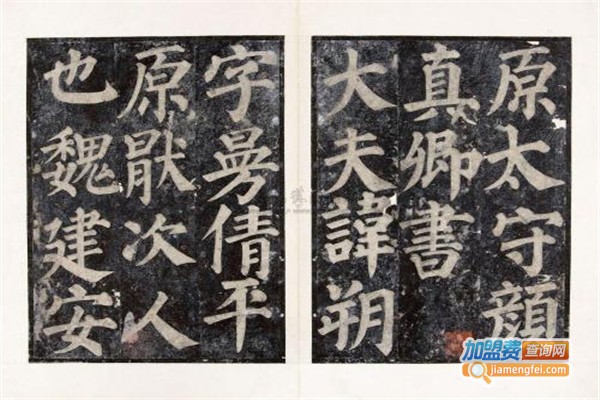 原太守顏
真卿書
大夫諱朔
字曼倩平
原厭次人
也魏建安
加盟费查询网
jiamengfei.com